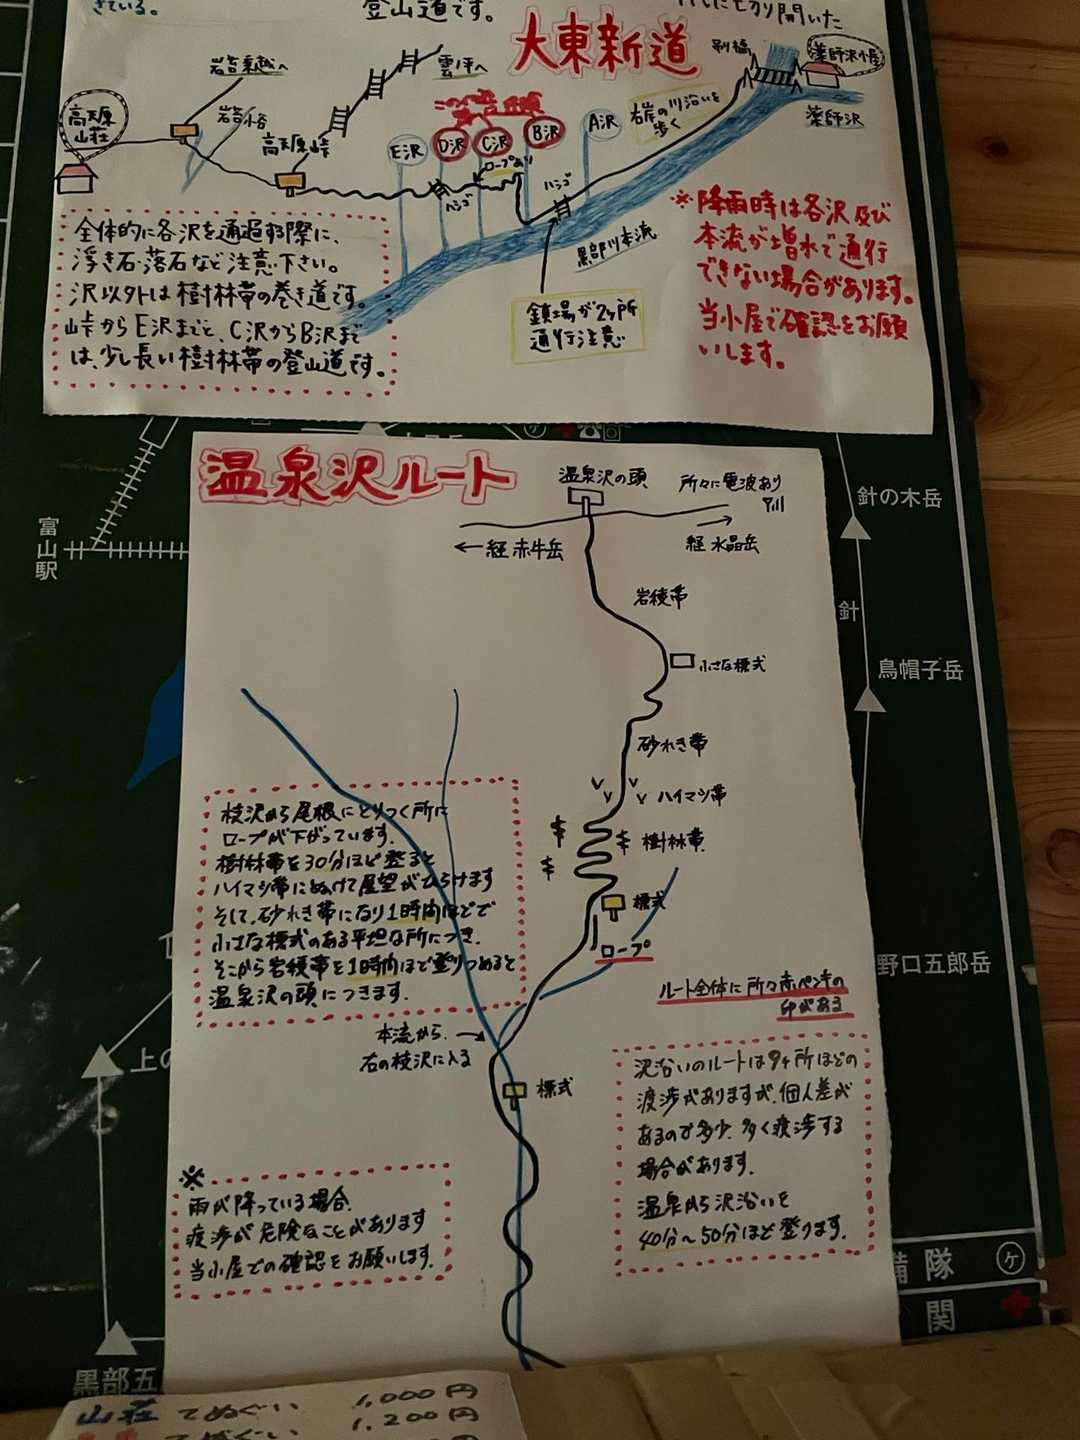 きている。
登山道です。
切り開いた
大東新道
岩苔乗越へ
雲ノ平へ
吊橋
薬師沢小屋
薬師沢
高天原
山荘
岩苔小谷
高天原峠
E沢
D沢
C沢
B沢
A沢
ロープあり
ハシゴ
ハシゴ
右岸の川沿いを
歩く
黒部川本流
鎖場が2ヶ所
通行注意
全体的に各沢を通過する際に、
浮き石・落石など注意下さい。
沢以外は樹林帯の巻き道です。
峠からE沢までと、C沢からB沢まで
は、少し長い樹林帯の登山道です。
※降雨時は各沢及び
本流が増水で通行
できない場合があります。
当小屋で確認をお願
いします。
温泉沢ルート
温泉沢の頭
所々に電波あり
←経 赤牛岳
→
経 水晶岳
岩稜帯
小さな標式
砂れき帯
ハイマツ帯
樹林帯
標式
ロープ
枝沢から尾根にとりつく所に
ロープが下がっています。
樹林帯を30分ほど登ると
ハイマツ帯にぬけて展望がひらけます
そして、砂れき帯になり1時間ほどで
小さな標式のある平坦な所につき、
そこから岩稜帯を1時間ほど登りつめると
温泉沢の頭につきます。
ルート全体に所々赤ペンキの
印がある
本流から→
右の枝沢に入る
標式
沢沿いのルートは9ヶ所ほどの
渡渉がありますが、個人差が
あるので多少、多く渡渉する
場合があります。
温泉から沢沿いを
40分〜50分ほど登ります。
※
雨が降っている場合、
渡渉が危険なことがあります
当小屋での確認をお願いします。
富山駅
針の木岳
針
烏帽子岳
野口五郎岳
上の
黒部五
備隊
ケ
関
山荘 てぬぐい 1,000円
てぬぐい 1,200円